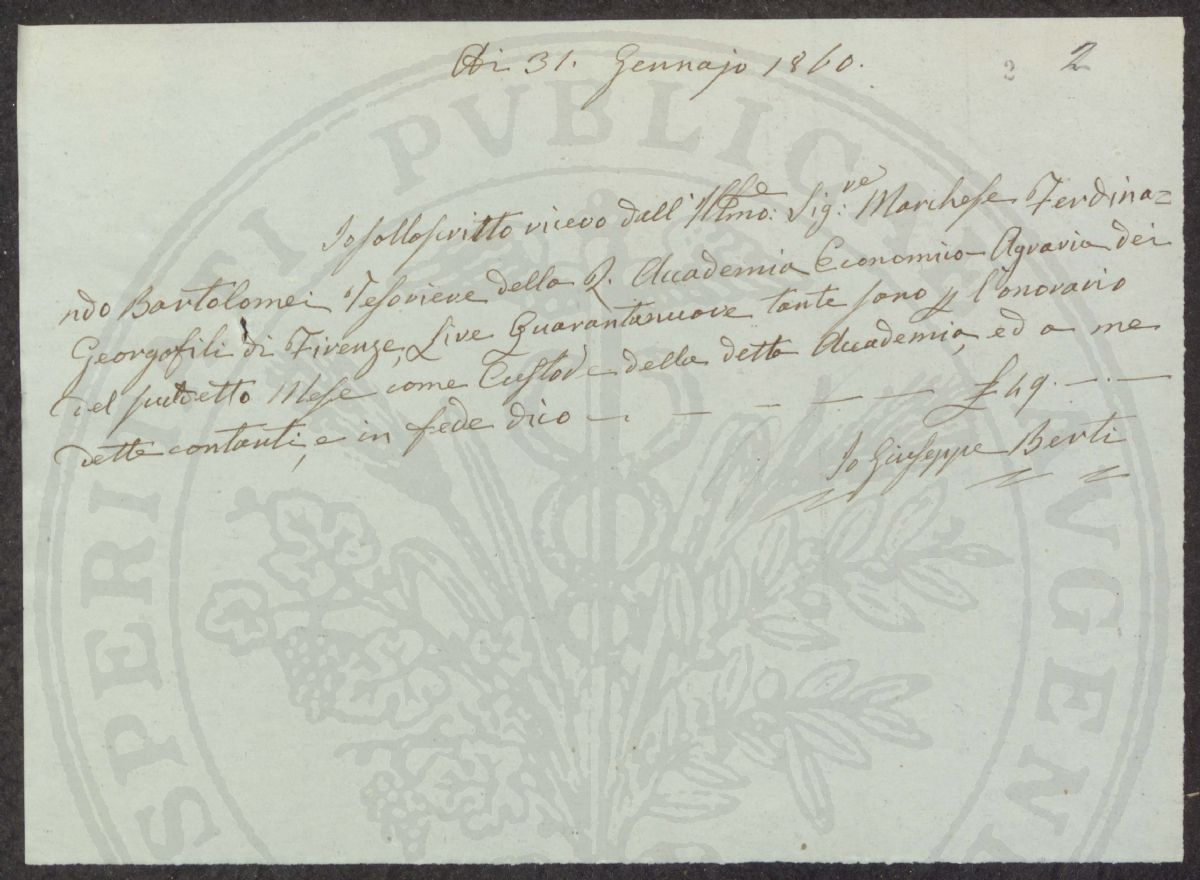 Adi 31. Gennajo 1860.
2 2
Io sottoscritto ricevo dall' Illmo: Sig:re Marchese Ferdina=
ndo Bartolomei Tesoriere della R. Accademia Economico-Agraria dei
Georgofili di Firenze, Lire Quarantanuove tante sono p l'onorario
del suddetto Mese come Custode della detta Accademia, ed a me
dette contanti, e in fede dico — . — — — — — £ 49. — . —
Io Giuseppe Berti
PVBLICAE
PROSPERITATI
AVGENDAE